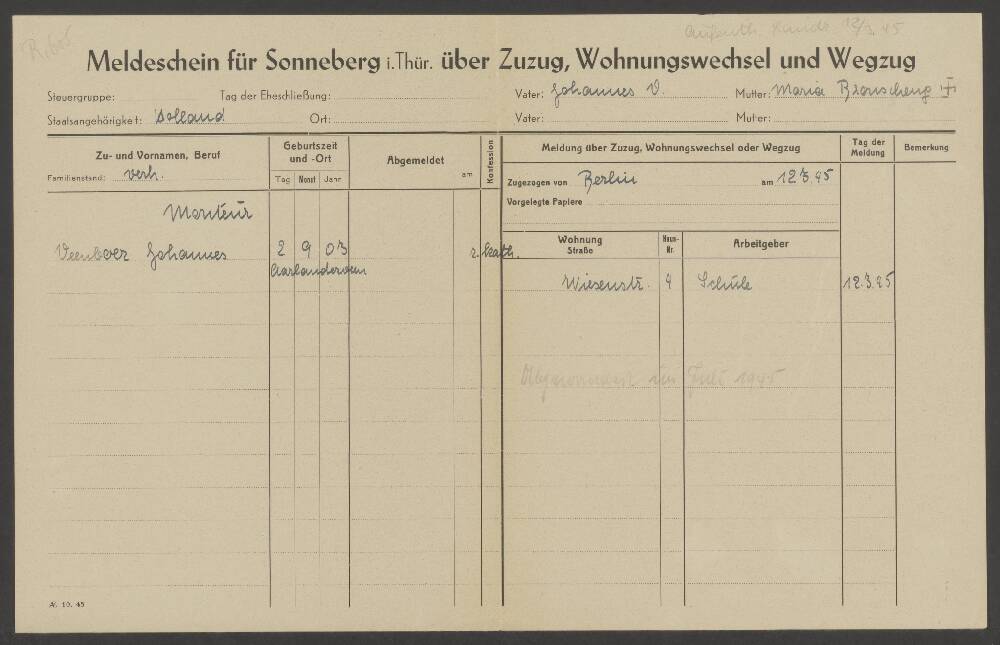 12/3. 45
Meldeschein für Sonneberg i. Thür. über Zuzug, Wohnungswechsel und Wegzug
Steuergruppe: Tag der Eheschließung: Vater: Johannes V. Mutter: Maria
Staatsangehörigkeit: Holland Ort: Vater: Mutter:
Zu- und Vornamen, Beruf Geburtszeit und -Ort Abgemeldet am Konfession Meldung über Zuzug, Wohnungswechsel oder Wegzug Tag der Meldung Bemerkung
Familienstand: verh. Tag Monat Jahr Zugezogen von Berlin am 12.3.45
Vorgelegte Papiere
Monteur
Wohnung Straße Haus-Nr. Arbeitgeber
Veenboer Johannes 2 9 03 r. kath.
Aarlanderveen
Wiesenstr. 4 Schüle 12.3.45
im Juli 1945
A/. 10. 45